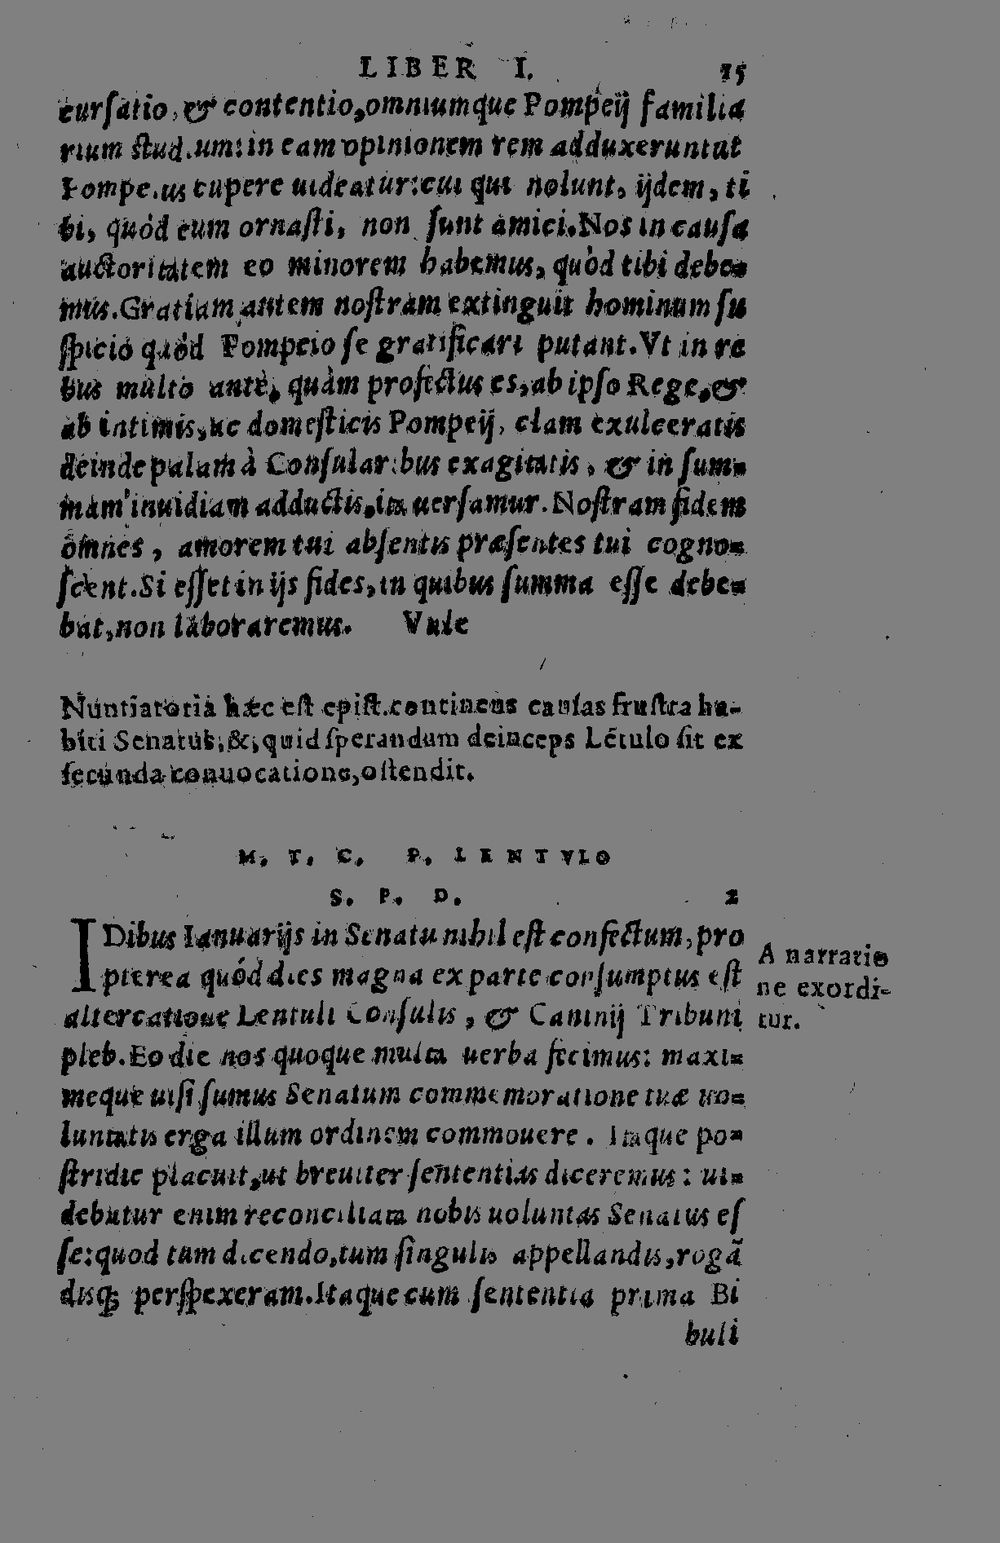 LIBER I. 15
cursatio, & contentio, omniumque Pompeij familia
rium studium: in eam opinionem rem adduxerunt ut
Pompeius cupere uideatur: cui qui nolunt, ijdem, ti
bi, quòd eum ornasti, non sunt amici. Nos in causa
auctoritatem eo minorem habemus, quòd tibi debe=
mus. Gratiam autem nostram extinguit hominum su
spicio quòd Pompeio se gratificari putant. Vt in re
bus multo antè, quàm profectus es, ab ipso Rege, &
ab intimis, ac domesticis Pompeij, clam exulceratis
deinde palam à Consularibus exagitatis, & in sum=
mam inuidiam adductis, ita uersamur. Nostram fidem
omnes, amorem tui absentis præsentes tui cogno=
scent. Si esset in ijs fides, in quibus summa esse debe=
bat, non laboraremus. Vale
Nuntiatoria hæc est epist. continens causas frustra ha-
biti Senatus, &, quid sperandum deinceps Lẽtulo sit ex
secunda conuocatione, ostendit.
M. T. C. P. LENTVLO
S. P. D. 2
IDibus Ianuarijs in Senatu nihil est confectum, pro
pterea quód dies magna ex parte consumptus est
altercatione Lentuli Consulis, & Caninij Tribuni
pleb. Eo die nos quoque multa uerba fecimus: maxi=
meque uisi sumus Senatum commemoratione tuæ uo=
luntatis erga illum ordinem commouere. Itaque po=
stridie placuit, ut breuiter sententias diceremus: ui=
debatur enim reconciliata nobis uoluntas Senatus es
se: quod tum dicendo, tum singulis appellandis, rogã
disq; perspexeram. Itaque cum sententia prima Bi
buli
A narratio
ne exordi=
tur.